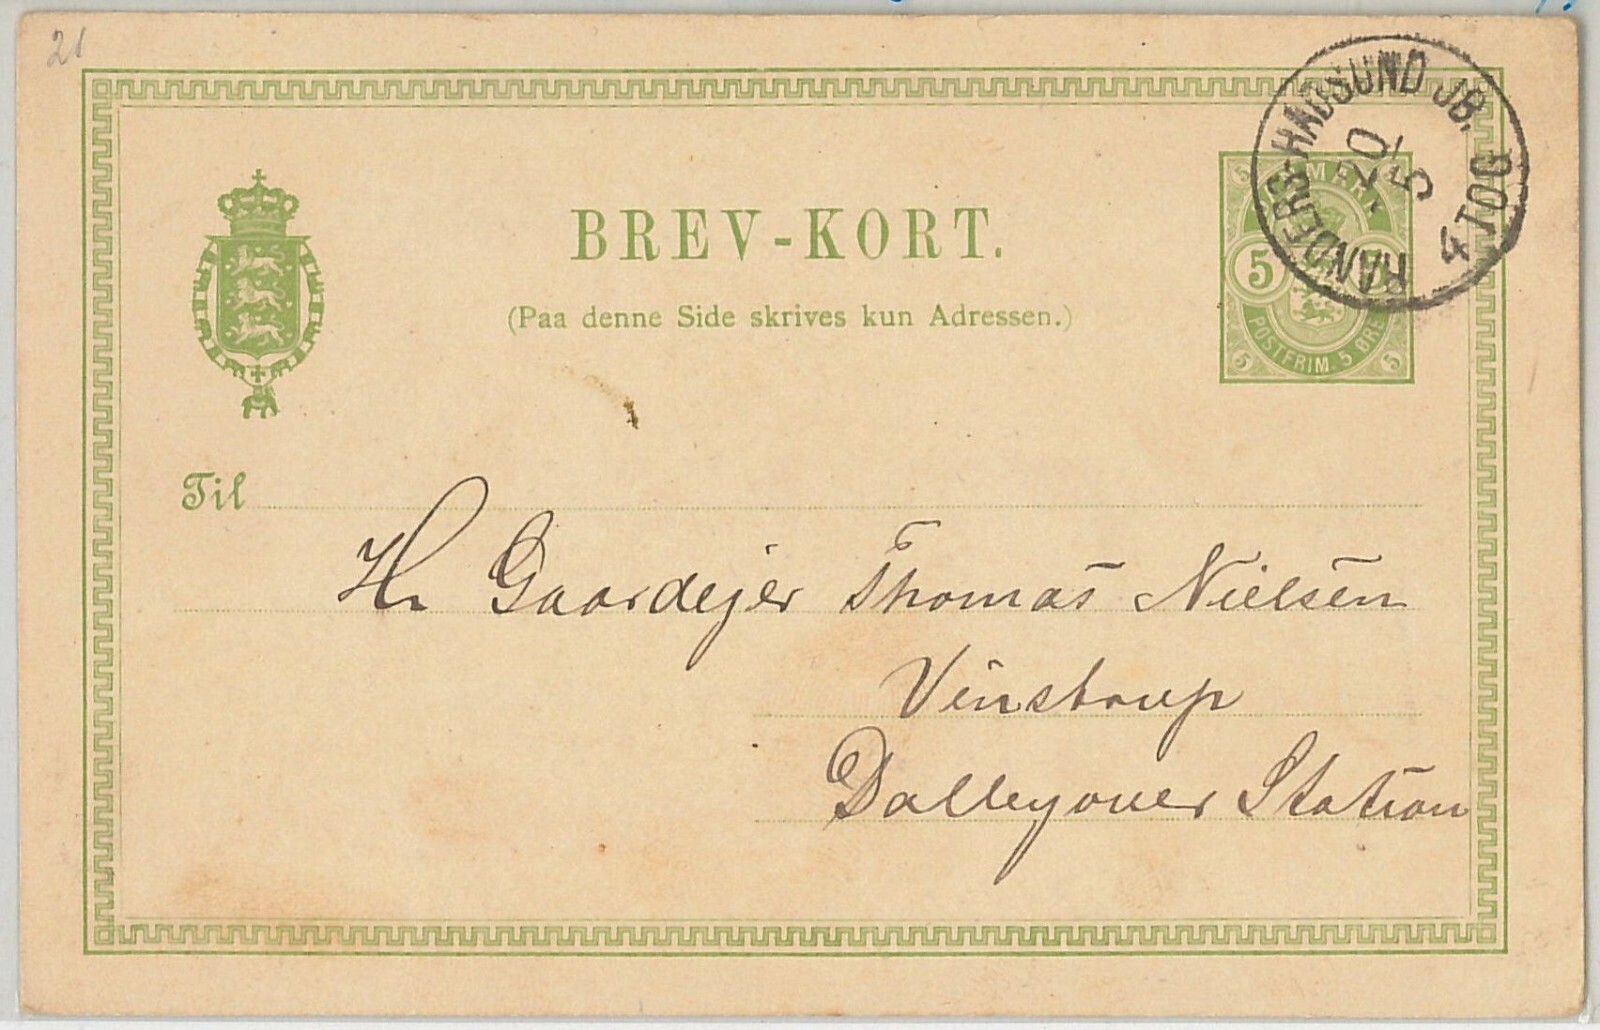 21
RANDERS-HADSUND JB.
20
5
4 TOG
5 MARK
5 5
POSTFRIM. 5 ØRE
5 5
BREV-KORT.
(Paa denne Side skrives kun Adressen.)
Til
Hr Gaardejer Thomas Nielsen
Vinstrup
Station